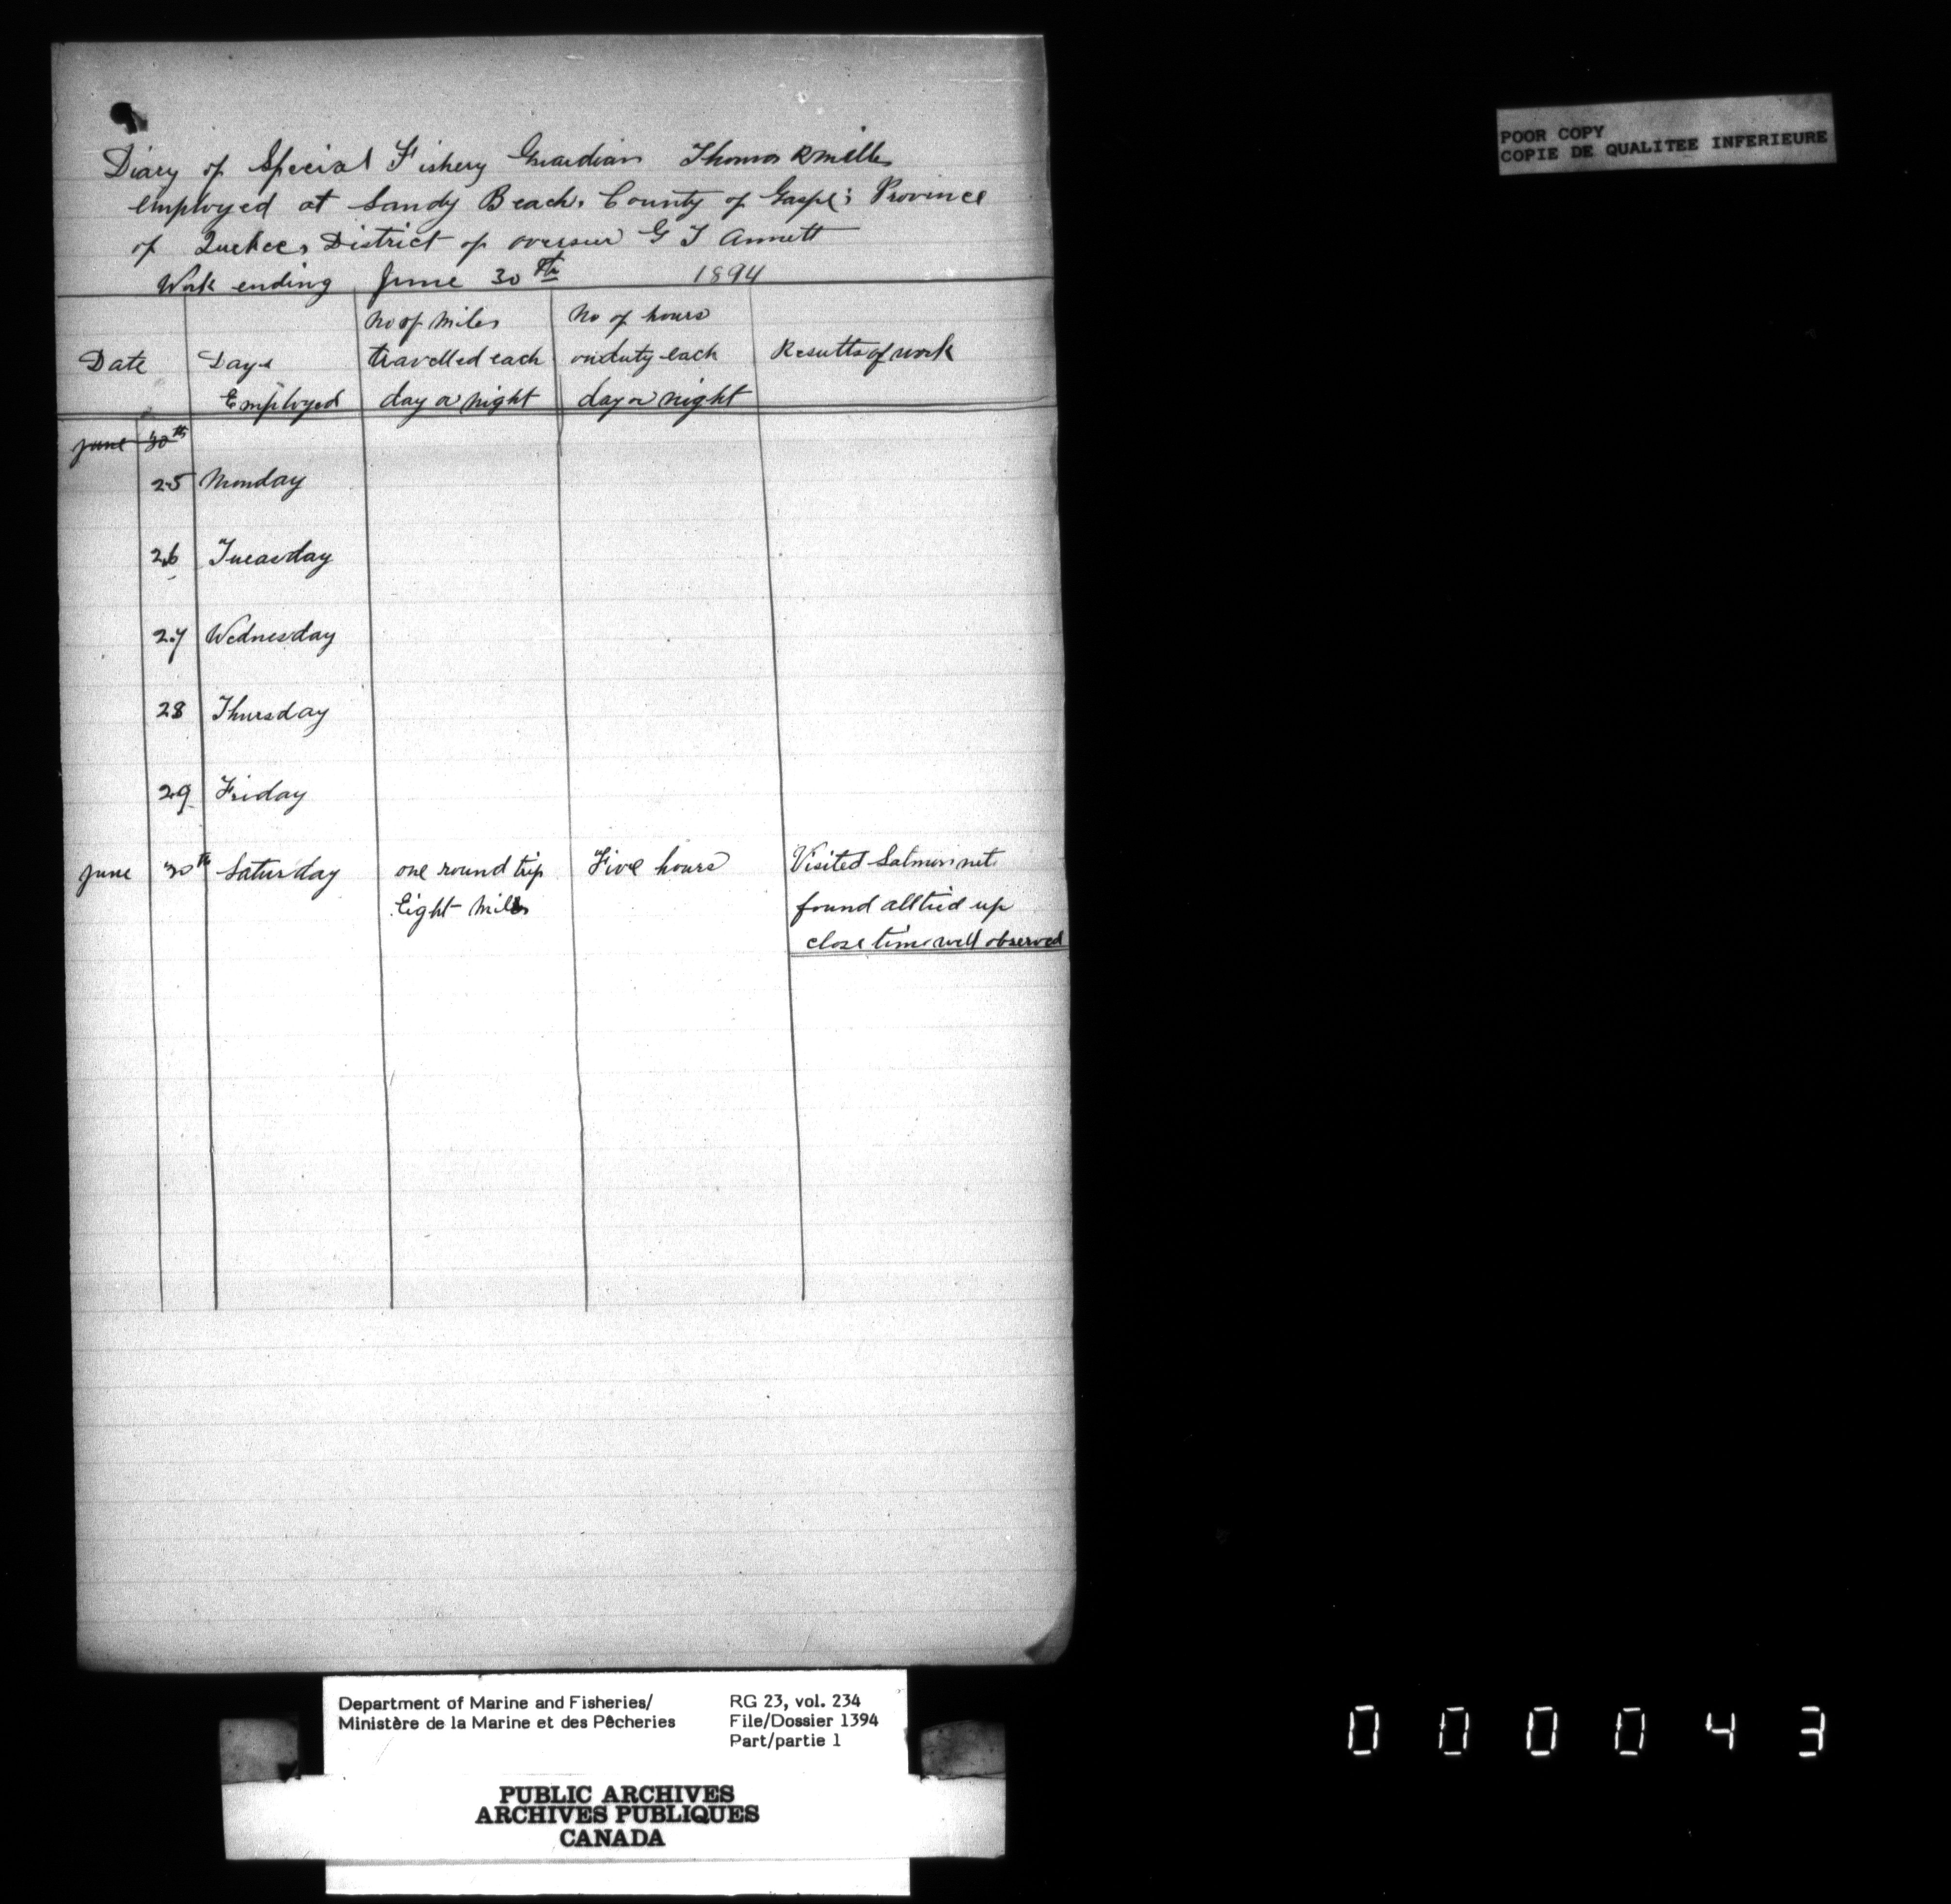 POOR COPY
COPIE DE QUALITEE INFERIEURE
Diary of Special Fishery Guardian Thomas R Miller
employed at Sandy Beach, County of Gaspe; Province
of Quebec, District of overseer G T Annett
Week ending June 30th 1894
Date
Days Employed
No of miles travelled each day or night
No of hours on duty each day or night
Results of work
June 30th
25 Monday
26 Tueasday
27 Wednesday
28 Thursday
29 Friday
June 30th Saturday one round trip Five hours Visited Salmon nets
Eight miles found all tied up
close time well observed
Department of Marine and Fisheries/ RG 23, vol. 234
Ministère de la Marine et des Pêcheries File/Dossier 1394
Part/partie 1
PUBLIC ARCHIVES
ARCHIVES PUBLIQUES
CANADA
000043